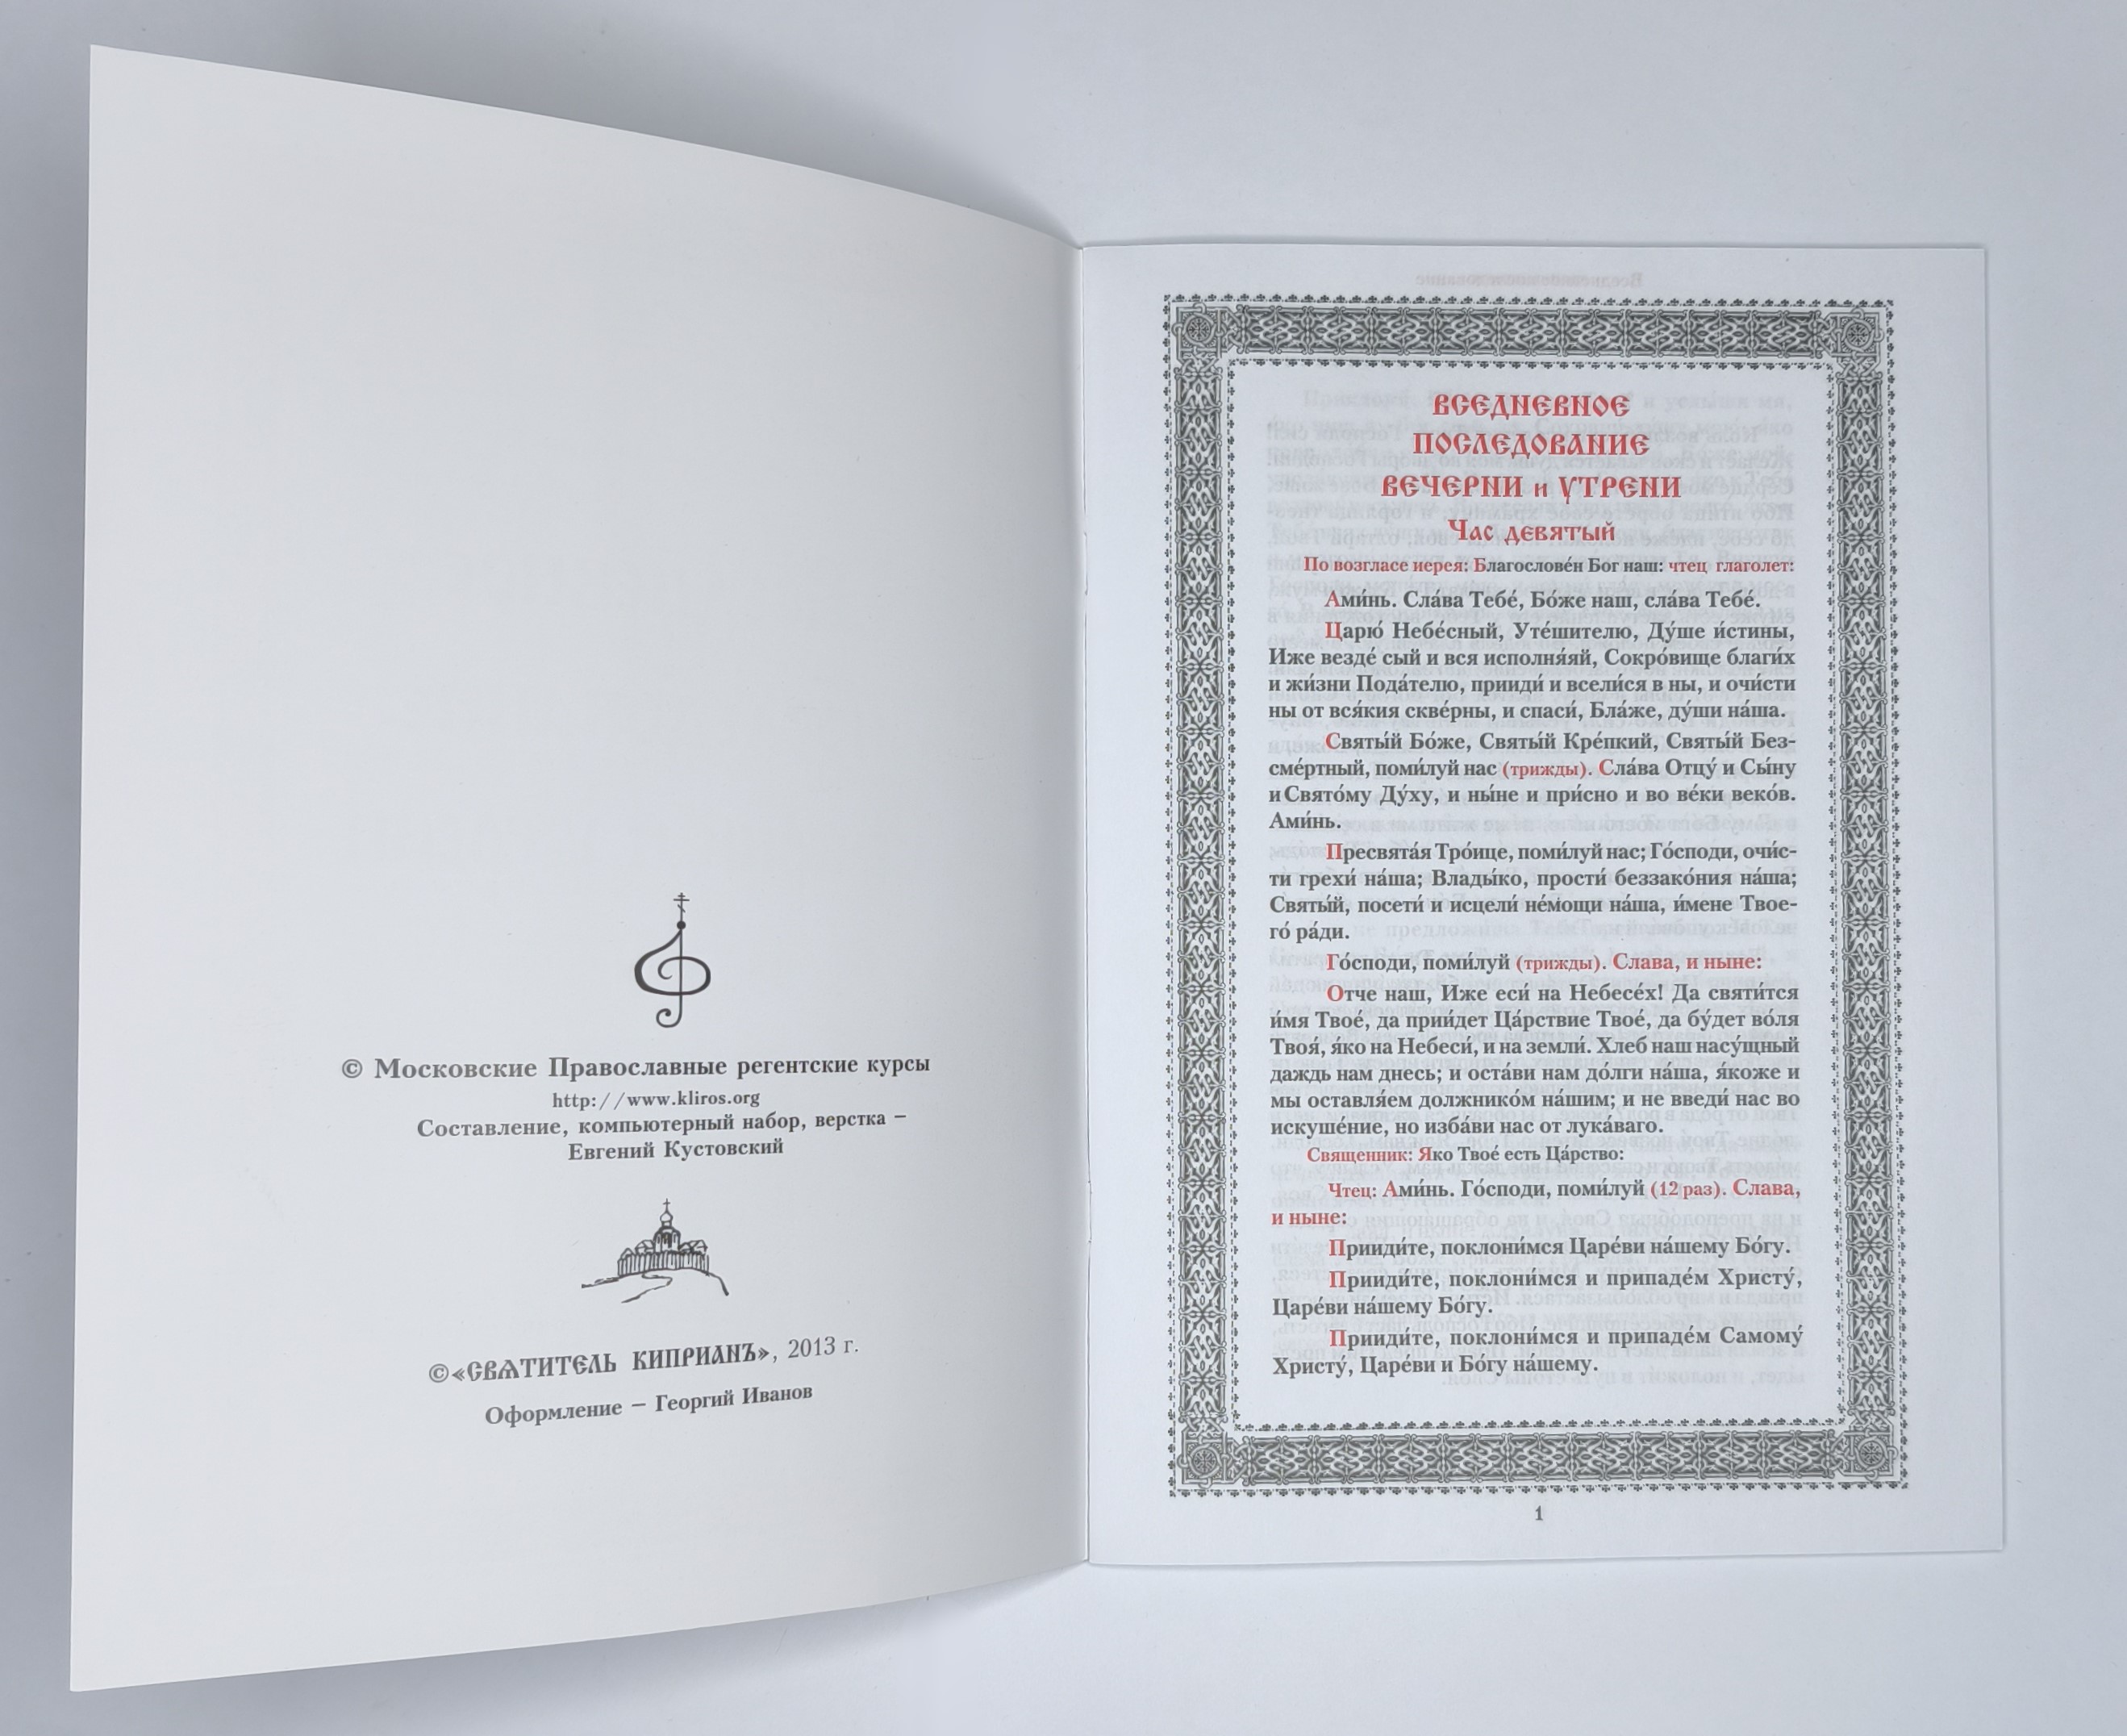 © Московские Православные регентские курсы
http://www.kliros.org
Составление, компьютерный набор, верстка –
Евгений Кустовский
©«СВѦТИТЕЛЬ КИПРИАНЪ», 2013 г.
Оформление – Георгий Иванов
ВСЕДНЕВНОЕ
ПОСЛЕДОВАНИЕ
ВЕЧЕРНИ и УТРЕНИ
Час девятый
По возгласе иерея: Благослове́н Бог наш: чтец глаголет:
Ами́нь. Сла́ва Тебе́, Бо́же наш, сла́ва Тебе́.
Царю́ Небе́сный, Уте́шителю, Ду́ше и́стины,
Иже везде́ сый и вся исполня́яй, Сокро́вище благи́х
и жи́зни Пода́телю, прииди́ и всели́ся в ны, и очи́сти
ны от вся́кия скве́рны, и спаси́, Бла́же, ду́ши на́ша.
Святы́й Бо́же, Святы́й Кре́пкий, Святы́й Без-
сме́ртный, поми́луй нас (трижды). Сла́ва Отцу́ и Сы́ну
и Свято́му Ду́ху, и ны́не и при́сно и во ве́ки веко́в.
Ами́нь.
Пресвята́я Тро́ице, поми́луй нас; Го́споди, очи́с-
ти грехи́ на́ша; Влады́ко, прости́ беззако́ния на́ша;
Святы́й, посети́ и исцели́ не́мощи на́ша, и́мене Твое-
го́ ра́ди.
Го́споди, поми́луй (трижды). Слава, и ныне:
Отче наш, Иже еси́ на Небесе́х! Да святи́тся
и́мя Твое́, да прии́дет Ца́рствие Твое́, да бу́дет во́ля
Твоя́, я́ко на Небеси́, и на земли́. Хлеб наш насу́щный
даждь нам днесь; и оста́ви нам до́лги на́ша, я́коже и
мы оставля́ем должнико́м на́шим; и не введи́ нас во
искуше́ние, но изба́ви нас от лука́ваго.
Священник: Яко Твое́ есть Ца́рство:
Чтец: Ами́нь. Го́споди, поми́луй (12 раз). Слава,
и ныне:
Прииди́те, поклони́мся Царе́ви на́шему Бо́гу.
Прииди́те, поклони́мся и припаде́м Христу́,
Царе́ви на́шему Бо́гу.
Прииди́те, поклони́мся и припаде́м Самому́
Христу́, Царе́ви и Бо́гу на́шему.
1